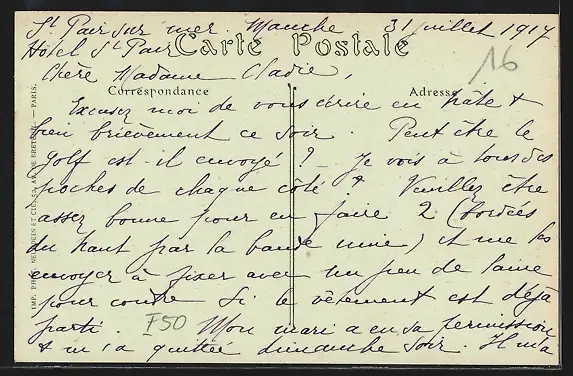 St Pair sur mer Manche 31 juillet 1917
Hotel St Pair
Carte Postale
16
Chère Madame Cladie,
Correspondance
Adresse
Excusez moi de vous écrire en hâte &
bien brièvement ce soir. Peut être le
golf est-il envoyé ? Je vois à tous des
poches de chaque côté & Veuillez être
assez bonne pour en faire 2 (bordées
du haut par la bande unie) et me les
envoyer à fixer avec un peu de laine
pour coudre Si le vêtement est déjà
parti. F50 Mon mari a eu sa permission
& m'a quittée dimanche soir. Il m'a
IMP. PHOT. NEURDEIN ET CIE, 52, AV. DE BRETEUIL. — PARIS.